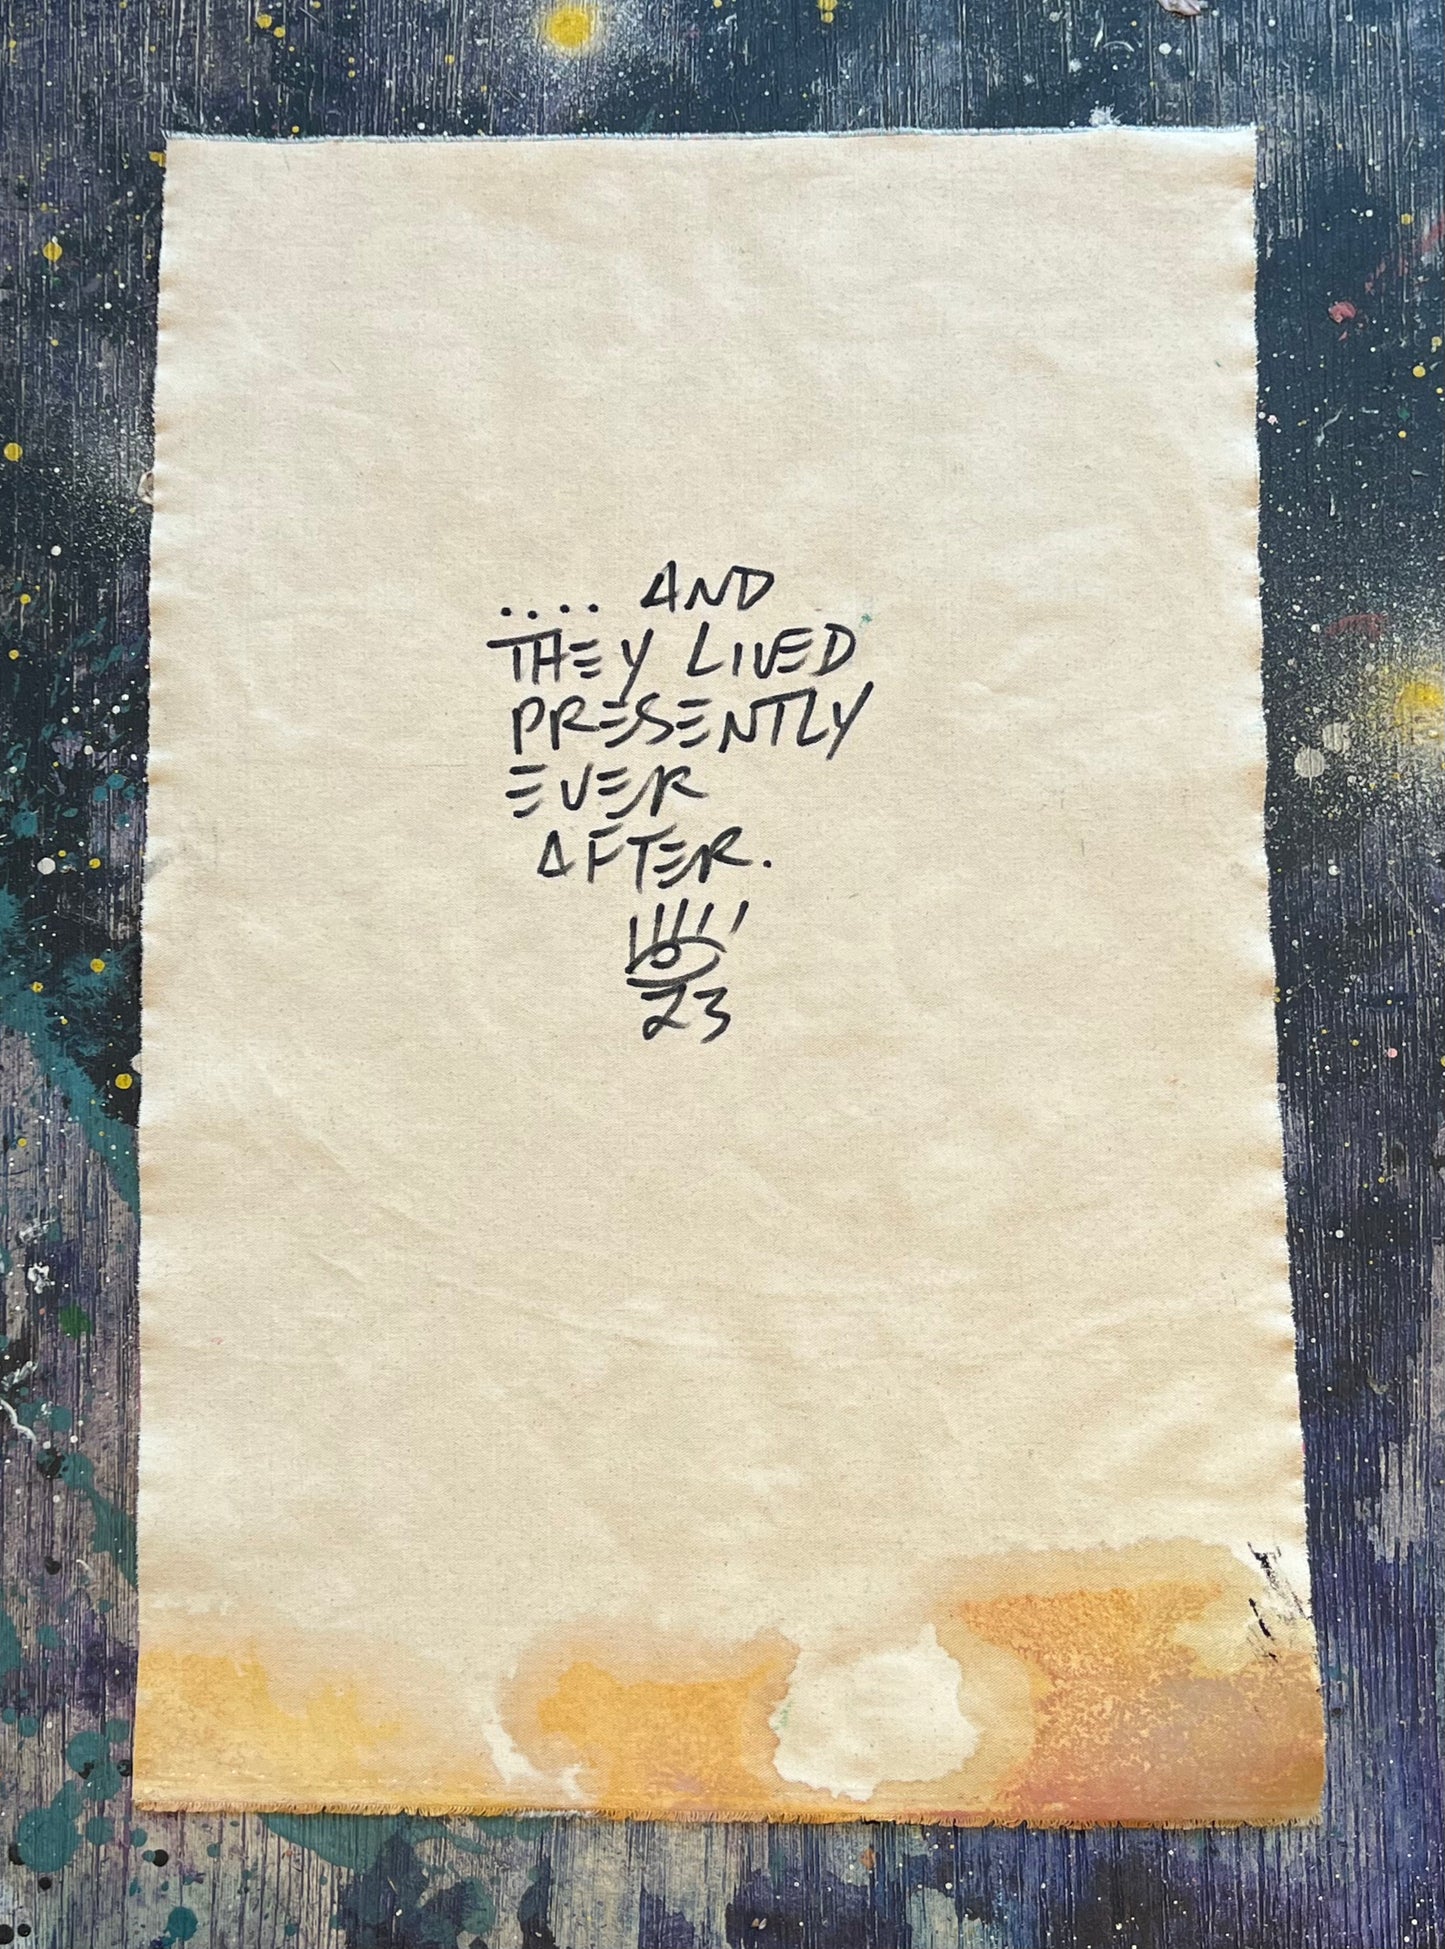 .... AND
THEY LIVED
PRESENTLY
EVER
AFTER.
23